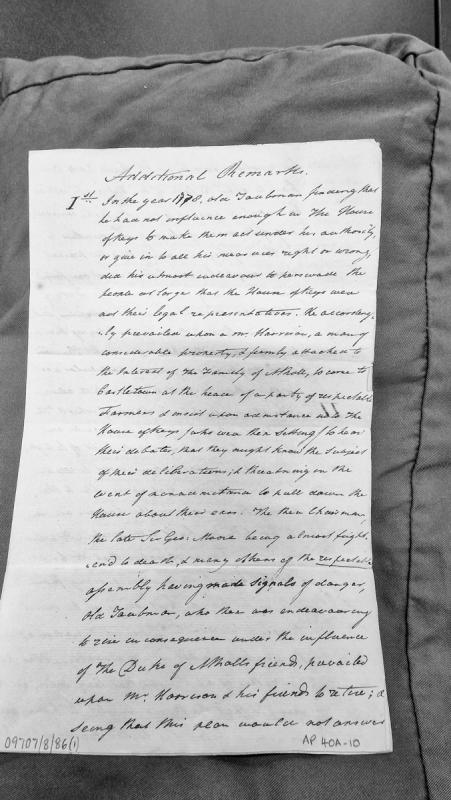 Additional Remarks.
1st In the year 1778, old Taubman finding that
he had not influence enough in The House
of Keys to make them act under his authority,
or give in to all his measures right or wrong,
did his utmost endeavour to perswade the
people at large that the House of Keys were
not their legal representatives. He according-
-ly prevailed upon a Mr. Harrison, a man of
considerable property, & firmly attached to
the Interest of the Family of Atholl, to come to
Castletown at the head of a party of respectable
Farmers & insist upon admittance into The
House of Keys (who were then sitting) to hear
their debates, that they might know the subject
of their deliberations; & threatning in the
event of nonadmittance to pull down the
House about their ears. The then Chairman,
the late Sir Geo: Moore being almost fright-
-end to death, & many others of the respectable
assembly having made signals of danger,
Old Taubman, who then was endeavouring
to rise in consequence under the influence
of The Duke of Atholls friend, prevailed
upon Mr. Harrison & his friends to retire; &
seing that this plan would not answer
09707/8/86(1)
AP 40A-10